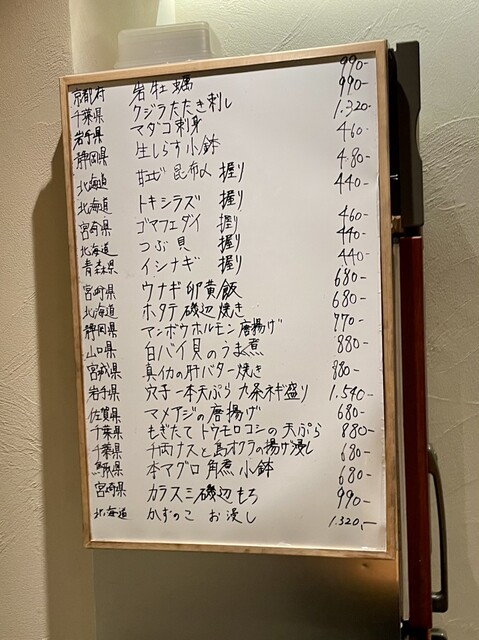 京都府 岩牡蠣 990-
千葉県 クジラたたき刺し 990-
岩手県 マダコ刺身 1.320-
静岡県 生しらす小鉢 460-
北海道 甘エビ昆布〆 握り 480-
北海道 トキシラズ 握り 440-
宮崎県 ゴマフエダイ 握り 460-
北海道 つぶ貝 握り 440-
青森県 イシナギ 握り 440-
宮崎県 ウナギ卵黄飯 680-
北海道 ホタテ磯辺焼き 680-
静岡県 マンボウホルモン唐揚げ 770-
山口県 白バイ貝のうま煮 880-
宮城県 真イカの肝バター焼き 880-
岩手県 穴子一本天ぷら 九条ネギ盛り 1.540-
佐賀県 マメアジの唐揚げ 680-
千葉県 もぎたてトウモロコシの天ぷら 880-
千葉県 千両ナスと島オクラの揚げ浸し 680-
鳥取県 本マグロ角煮小鉢 680-
宮崎県 カラスミ磯辺もち 990-
北海道 かずのこ お浸し 1.320,-